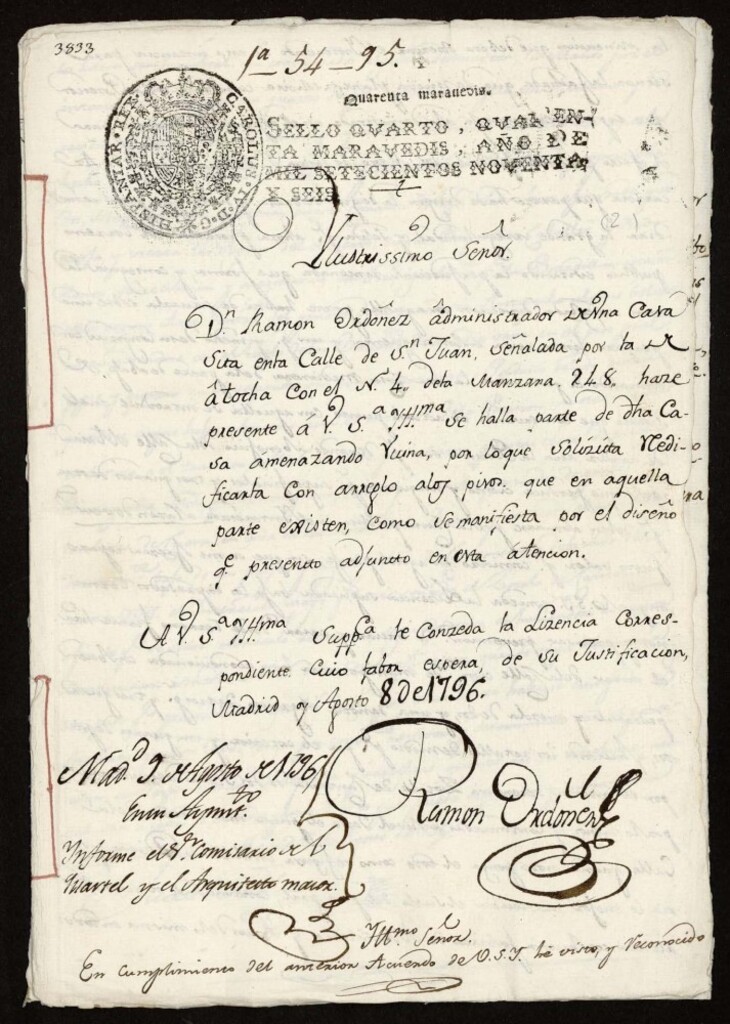 3833
1ª - 54 - 95.
Quarenta maravedis.
SELLO QVARTO, QVAREN-
TA MARAVEDIS, AÑO DE
MIL SETECIENTOS NOVENTA
Y SEIS
CAROLUS IV D. G. HISPANIAR. REX
(2)
Yllustrissimo Señor.
Dn. Ramon Ordoñez administrador de vna Casa
Sita enla Calle de Sn. Juan, Señalada por la de
Atocha Con el N. 4. dela Manzana 248. haze
presente á V. S. Yllma Se halla parte de dha Ca-
sa amenazando Ruina, por lo que Solizita Redi-
ficarla Con arreglo alos pisos que en aquella
parte existen, Como Se manifiesta por el diseño
qe. presento adjuncto en esta atencion.
A V. Sa. Yllma Suppca. le Conzeda la Lizencia Corres-
pondiente Cuio fabor espera, de su Justificacion,
Madrid y Agosto 8 de 1796.
Madd. 9. de Agosto de 1796
En su Ayuntto.
Ramon Ordoñez
Ynforme el Sr. Comisario del
Quartel y el Arquitecto maior.
Yllmo Señor.
En cumplimiento del anterior Acuerdo de V.S.Y. he visto, y reconocido